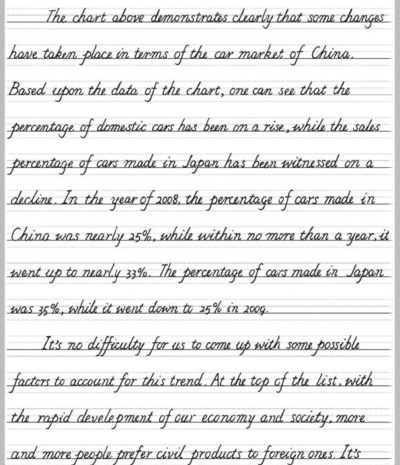 The chart above demonstrates clearly that some changes
have taken place in terms of the car market of China.
Based upon the data of the chart, one can see that the
percentage of domestic cars has been on a rise, while the sales
percentage of cars made in Japan has been witnessed on a
decline. In the year of 2008, the percentage of cars made in
China was nearly 25%, while within no more than a year, it
went up to nearly 33%. The percentage of cars made in Japan
was 35%, while it went down to 25% in 2009.
It's no difficulty for us to come up with some possible
factors to account for this trend. At the top of the list, with
the rapid develepment of our economy and society, more
and more people prefer civil products to foreign ones. It's